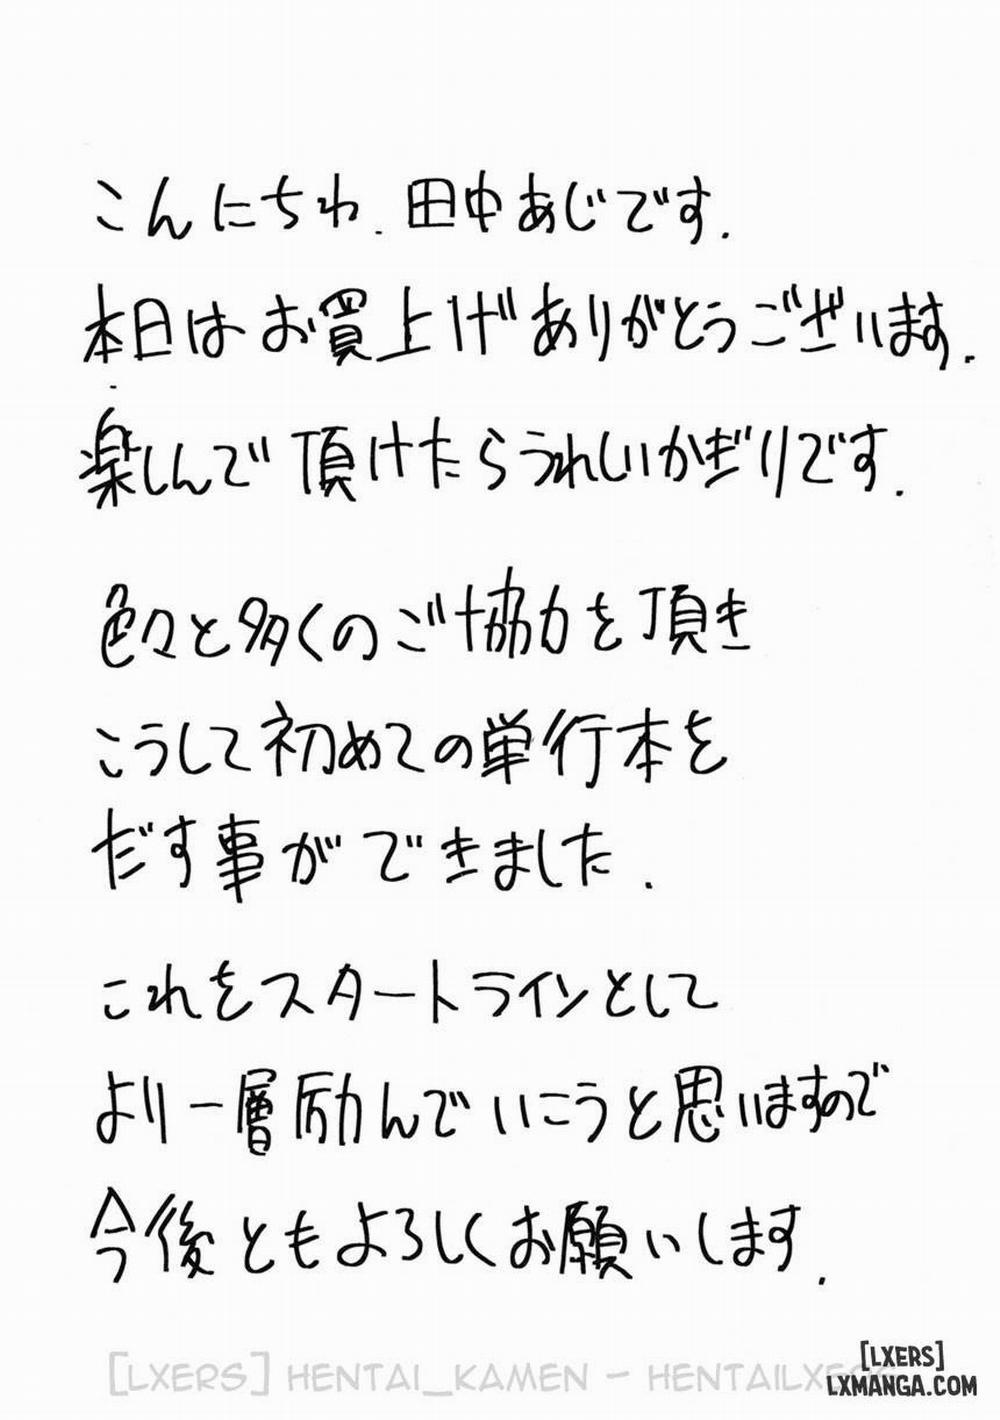 こんにちわ.田中あじです.
本日はお買上げありがとうございます.
楽しんで頂けたらうれしいかぎりです.
色々と多くのご協力を頂き
こうして初めての単行本を
だす事ができました.
これをスタートラインとして
より一層励んでいこうと思いますので
今後ともよろしくお願いします.
[LXERS] HENTAI_KAMEN – HENTAILXERS
[LXERS]
LXMANGA.COM